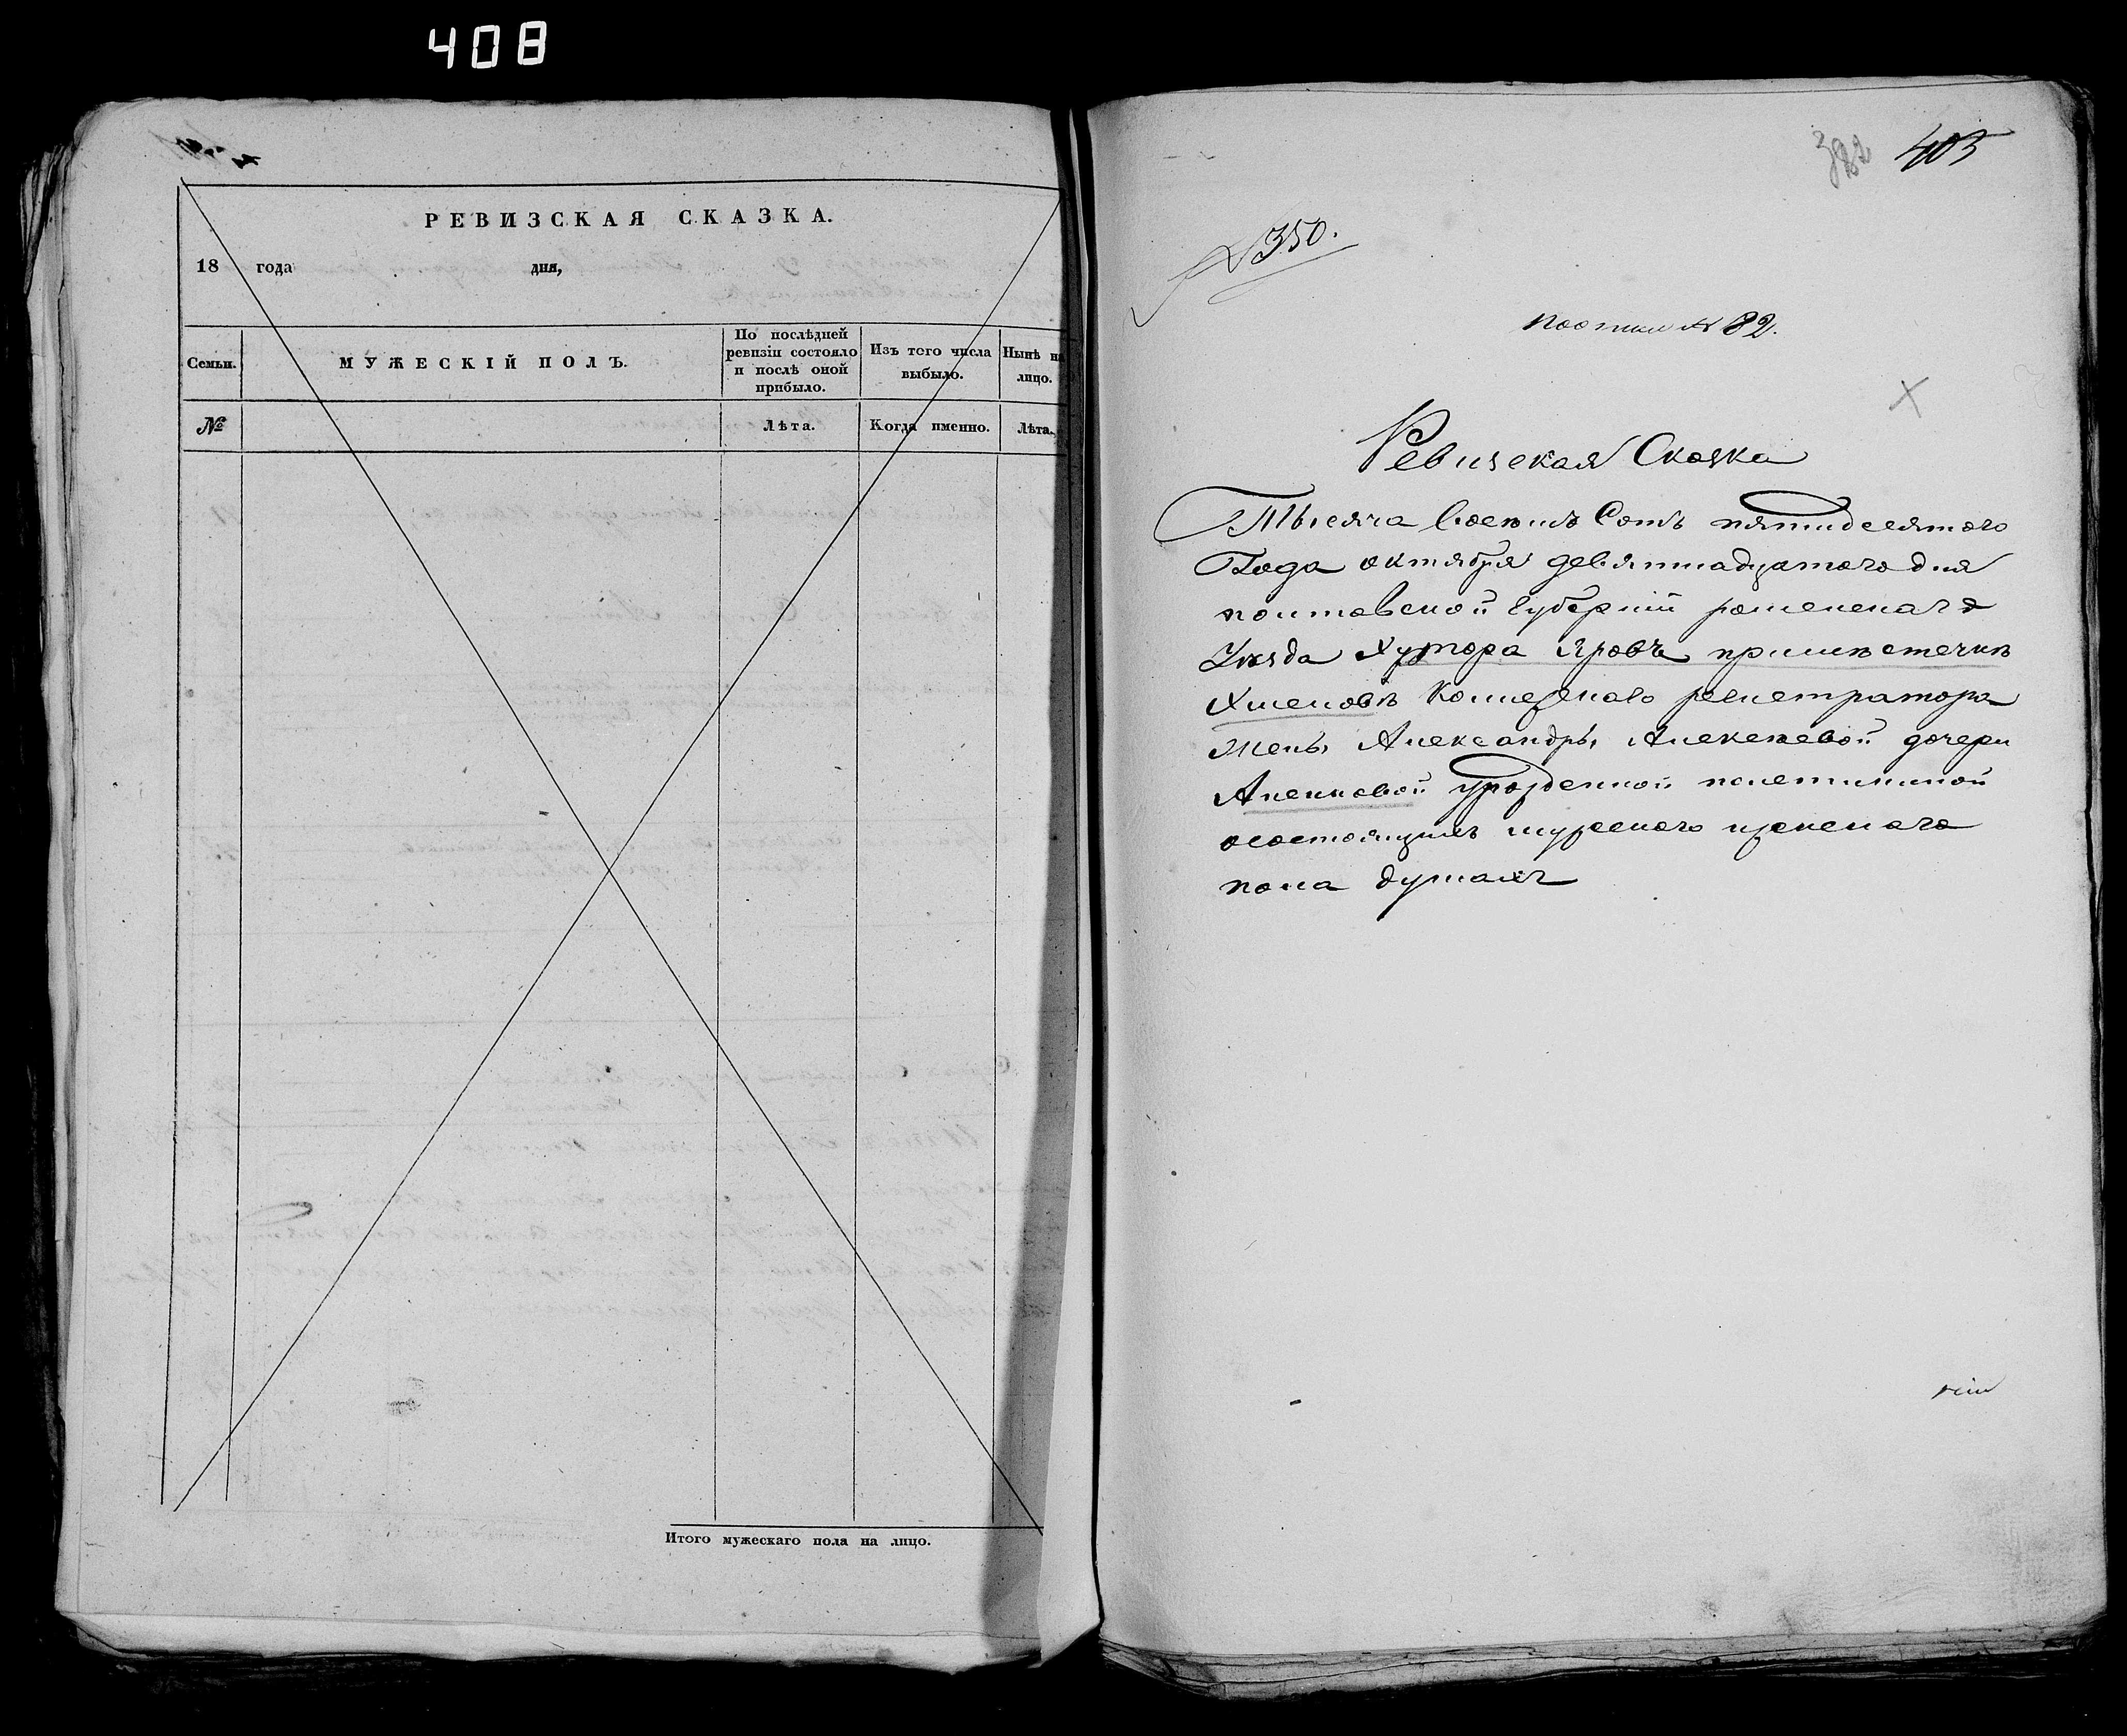 408
РЕВИЗСКАЯ СКАЗКА.
18 года дня,
Семьи.
МУЖЕСКІЙ ПОЛЪ.
По послѣдней
ревизіи состояло
и послѣ оной
прибыло.
Изъ того числа
выбыло.
Нынѣ на
лицо.
№
Лѣта.
Когда именно.
Лѣта.
Итого мужескаго пола на лицо.
382 405
№ 350.
№ 82.
Ревизская Сказка
Тысяча восемъ Сотъ пятидесятого
Года октября девятнадцатого дня
полтавской губерніи роменскаго
Уѣзда Хутора Яровъ при мѣстечкѣ
Хмеловѣ Коллежскаго регистратора
жены Александры Алексѣевой дочери
урожденной
осостоящихъ мужеского иженского
пола душахъ